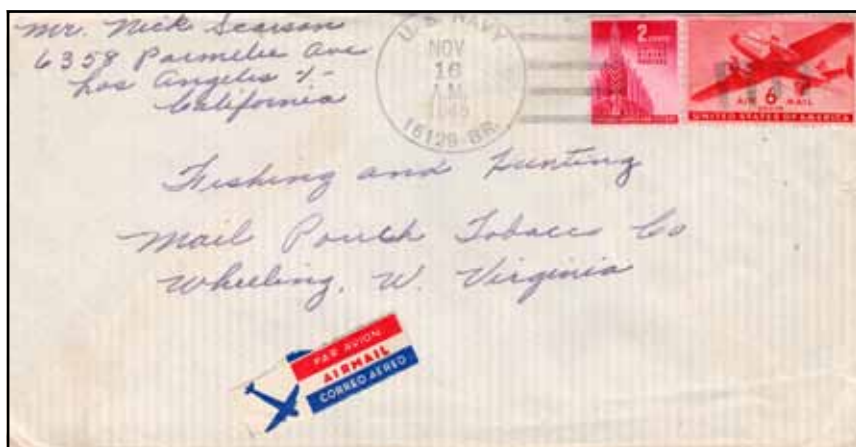 Mr. Nick Scarson
6358 Parmelee Ave
Los Angeles 1-
California
U.S. NAVY
NOV
16
A.M.
16129 BR.
2 CENTS
UNITED
AIR 6 MAIL
CENTS
UNITED STATES OF AMERICA
Fishing and Hunting
Mail Pouch Tobacco Co
Wheeling, W. Virginia
PAR AVION
AIRMAIL
CORREO AEREO